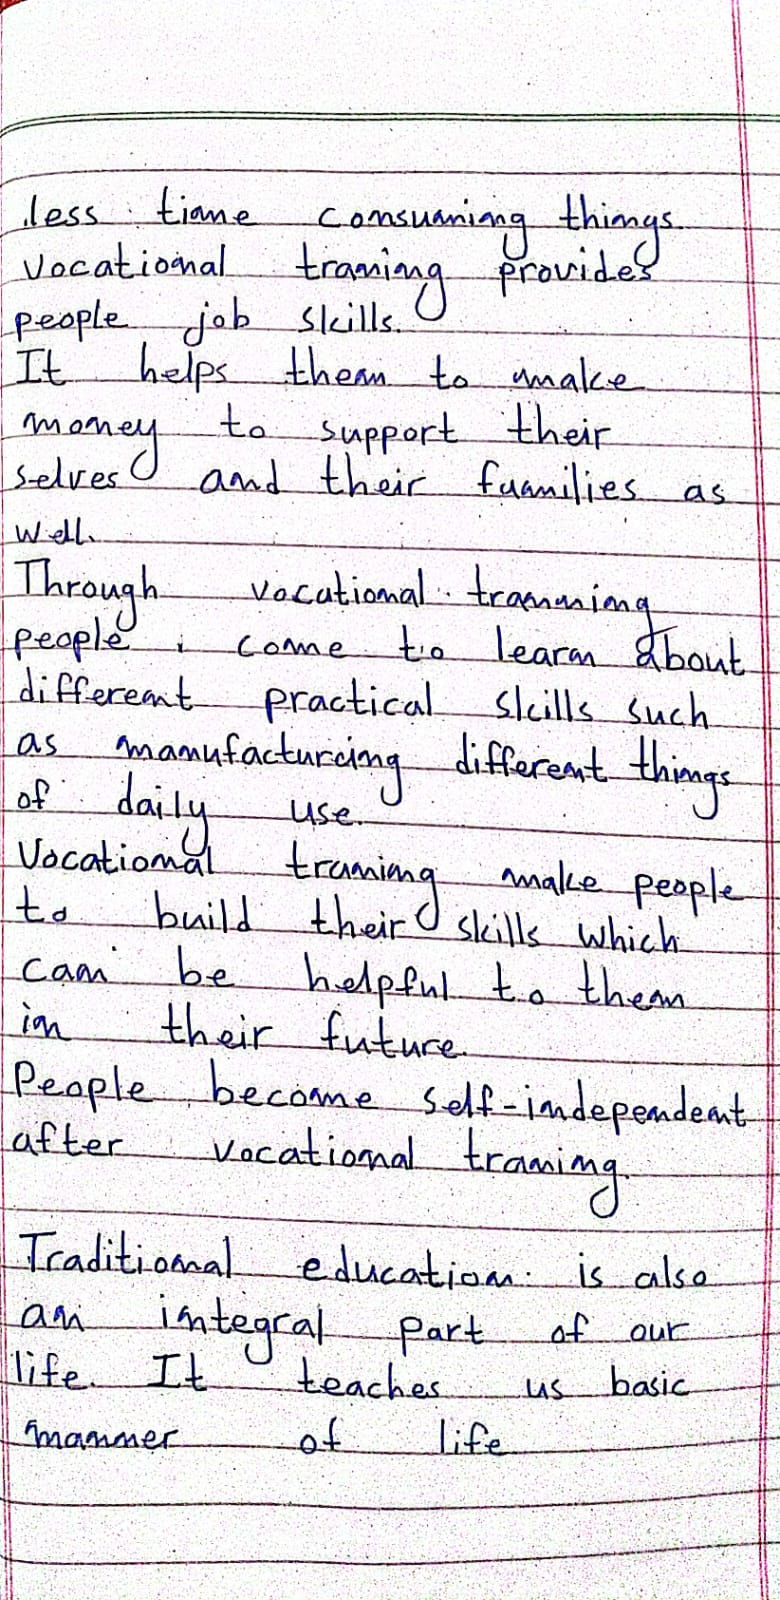 less time consuming things
vocational traning provides
people job skills.
It helps them to make
money to support their
selves and their families as
well.
Through vocational tranning
people come to learn about
different practical skills such
as manufacturing different things
of daily use.
Vocational traning make people
to build their skills which
can be helpful to them
in their future.
People become self-independent
after vocational traning.
Traditional education is also
an integral part of our
life. It teaches us basic
manner of life